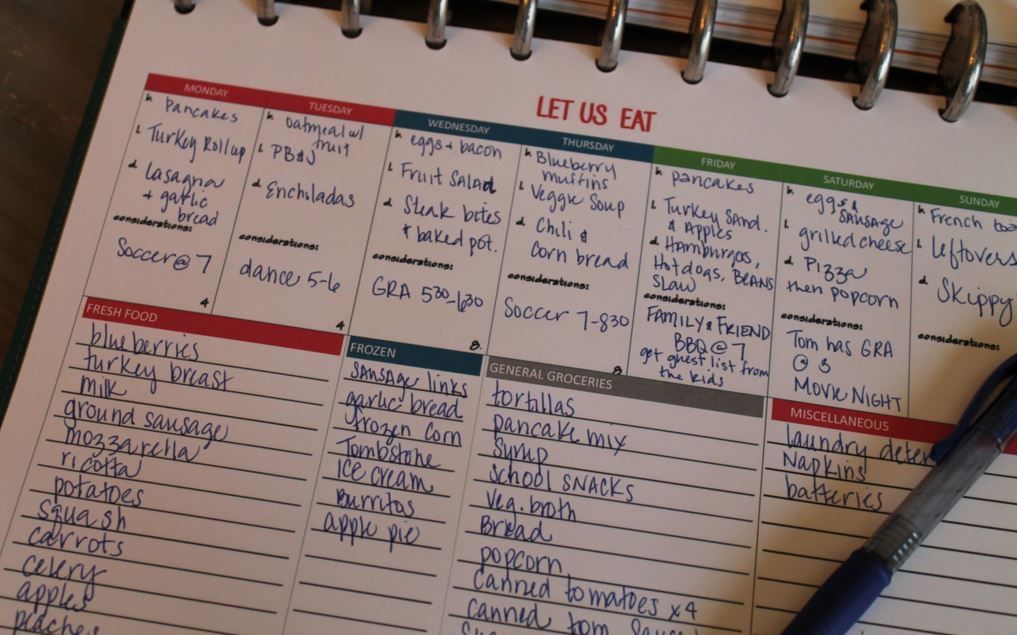 LET US EAT
MONDAY
b. Pancakes
l. Turkey Rollup
d. Lasagna
+ garlic
bread
considerations:
Soccer @ 7
4
TUESDAY
b. Oatmeal w/
fruit
l. PB&J
d. Enchiladas
considerations:
dance 5-6
4
WEDNESDAY
b. eggs + bacon
l. Fruit Salad
d. Steak bites
+ baked pot.
considerations:
GRA 530-630
8.
THURSDAY
b. Blueberry
muffins
l. Veggie Soup
d. Chili &
Corn bread
considerations:
Soccer 7-830
FRIDAY
b. pancakes
l. Turkey Sand.
& Apples
d. Hamburgers,
Hotdogs, BEANS
SLAW
considerations:
FAMILY & FRIEND
BBQ @ 7
get guest list from
the kids
SATURDAY
b. eggs &
SAUSAGE
l. grilled cheese
d. Pizza
then popcorn
considerations:
Tom has GRA
@ 3
MOVIE NIGHT
SUNDAY
b. French
l. leftovers
d. Skippy
considerations:
FRESH FOOD
blueberries
turkey breast
milk
ground sausage
mozzarella
ricotta
potatoes
squash
carrots
celery
apples
peaches
FROZEN
sausage links
garlic bread
frozen corn
Tombstone
ICE cream
Burritos
apple pie
GENERAL GROCERIES
tortillas
pancake mix
Syrup
school SNACKS
veg. broth
Bread
popcorn
canned tomatoes x4
canned tom
MISCELLANEOUS
laundry deter
Napkins
batteries